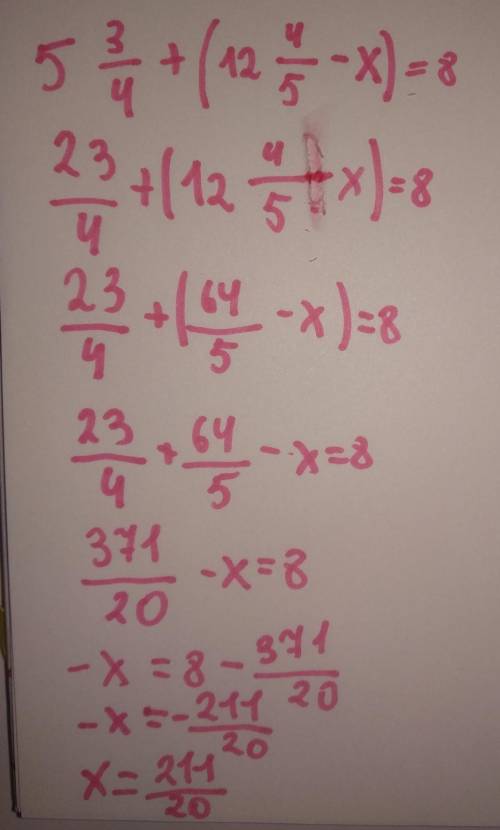 5 3/4 + (12 4/5 - x) = 8
23/4 + (12 4/5 - x) = 8
23/4 + (64/5 - x) = 8
23/4 + 64/5 - x = 8
371/20 - x = 8
-x = 8 - 371/20
-x = - 211/20
x = 211/20